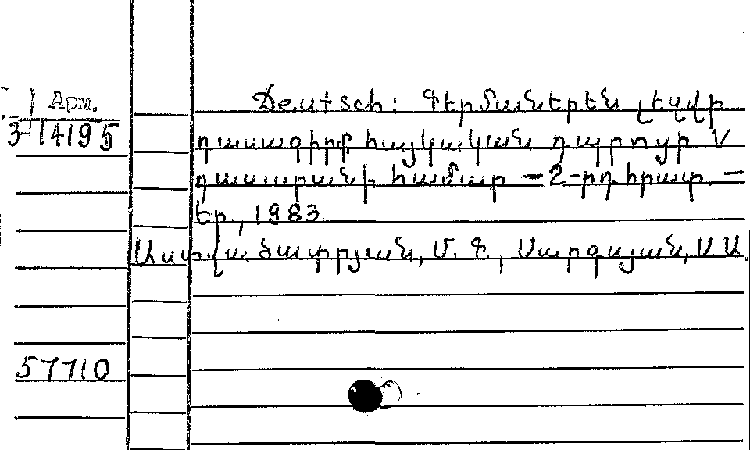 Арм.
3-14195
Deutsch: Գերմաներեն լեզվի
դասագիրք հայկական դպրոցի V
դասարանի համար — 2-րդ հրատ. —
Եր., 1983
Աստվածատրյան, Մ. Գ., Սարգսյան, Ս. Ա.
57710